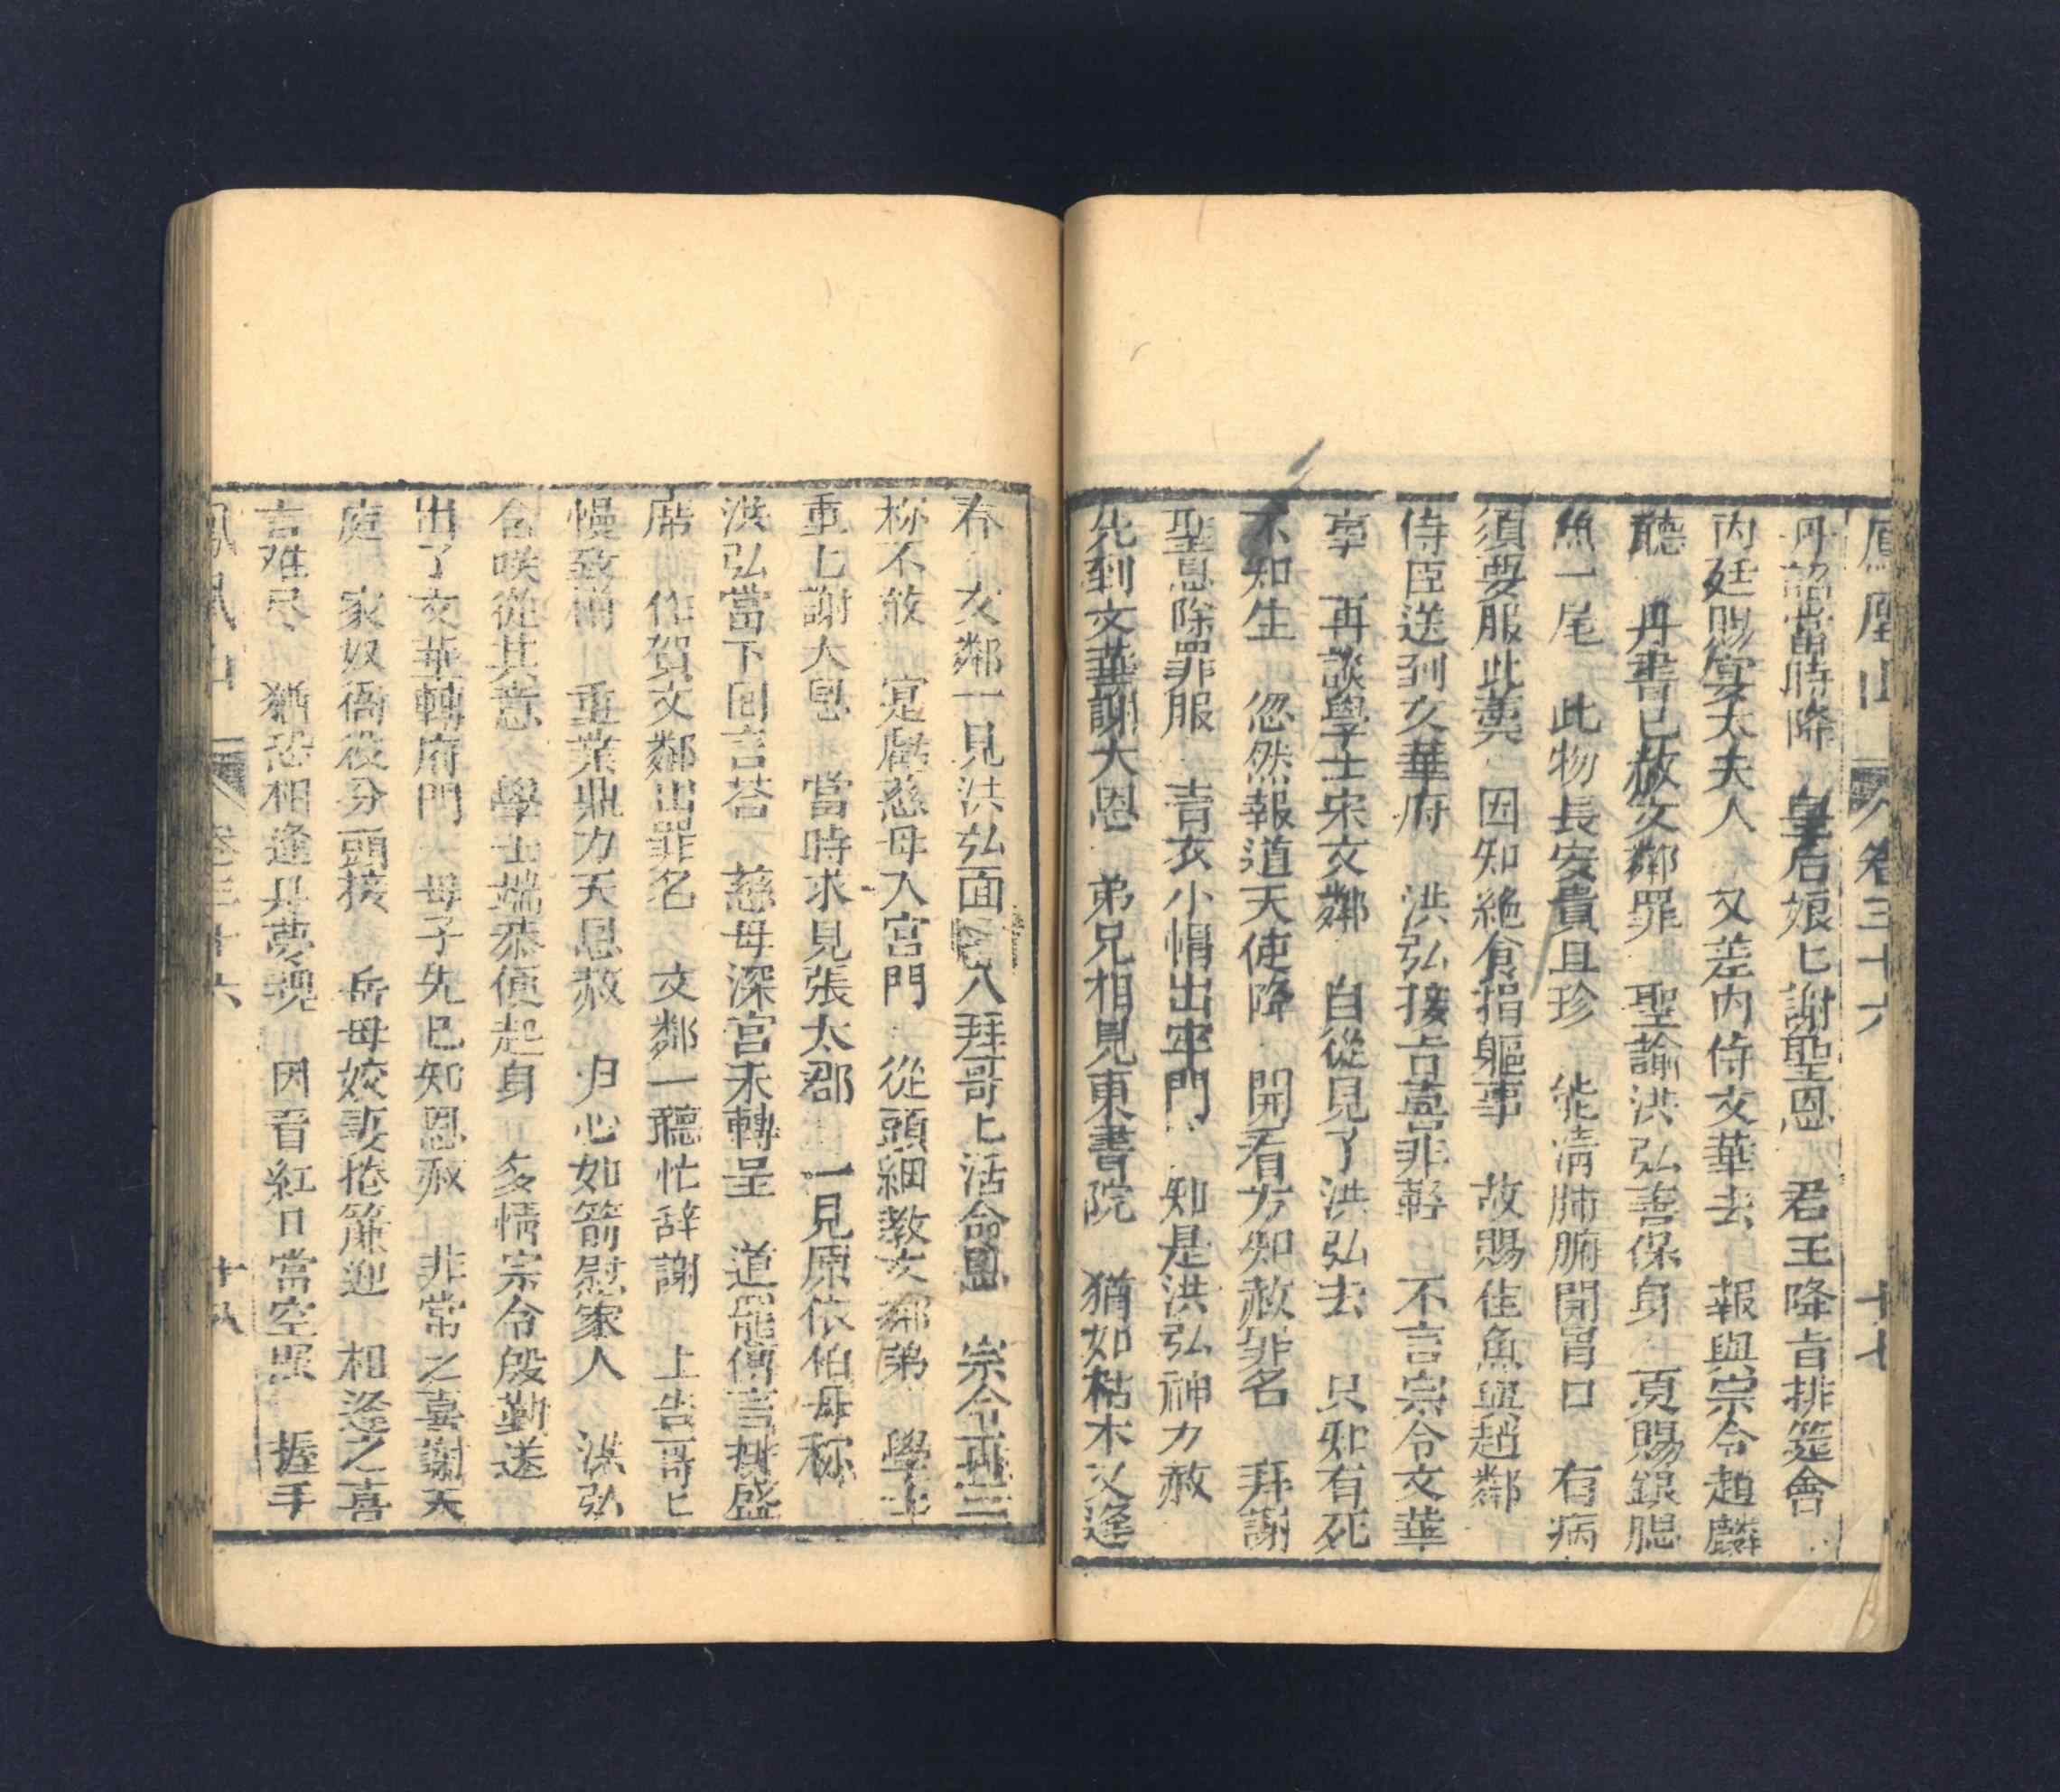 鳳凰山 卷三十六 十七
丹詔當時降 皇后娘匕謝聖恩 君王降旨排筵會
內廷賜宴太夫人 又差內侍文華去 報與宗令趙麟
聽 丹書已赦文鄰罪 聖諭洪弘善保身 頁賜銀腮
魚一尾 此物長安貴且珍 能清肺腑開胃口 有病
須要服此羮 因知絶食捐軀事 故賜佳魚與趙鄰
侍臣送到文華府 洪弘接旨喜非輕 不言宗令文華
事 再談學士宋文鄰 自從見了洪弘去 只知有死
不知生 忽然報道天使降 開看方知赦罪名 拜謝
聖恩除罪服 青衣小帽出牢門 知是洪弘神力赦
先到文華謝大恩 弟兄相見東書院 猶如枯木又逢
春 文鄰一見洪弘面 八拜哥匕活命恩 宗令再三
称不敢 寔虧慈母入宮門 從頭細教文鄰弟 學士
重匕謝大恩 當時求見張太郡 一見原依伯母称
洪弘當下回言荅 慈母深宮未轉呈 道罷傳言排盛
席 作賀文鄰出罪名 文鄰一聽忙辞謝 上告哥匕
慢致誠 重業鼎力天恩赦 归心如箭慰家人 洪弘
含咲從其意 學士端恭便起身 多情宗令殷勤送
出了文華轉府門 母子先已知恩赦 非常之喜謝天
庭 家奴衙役分頭接 岳母姣妻捲簾迎 相逢之喜
言难尽 猶恐相逢是夢魂 因音紅日當空照 握手
鳳凰山 卷三十六 十八